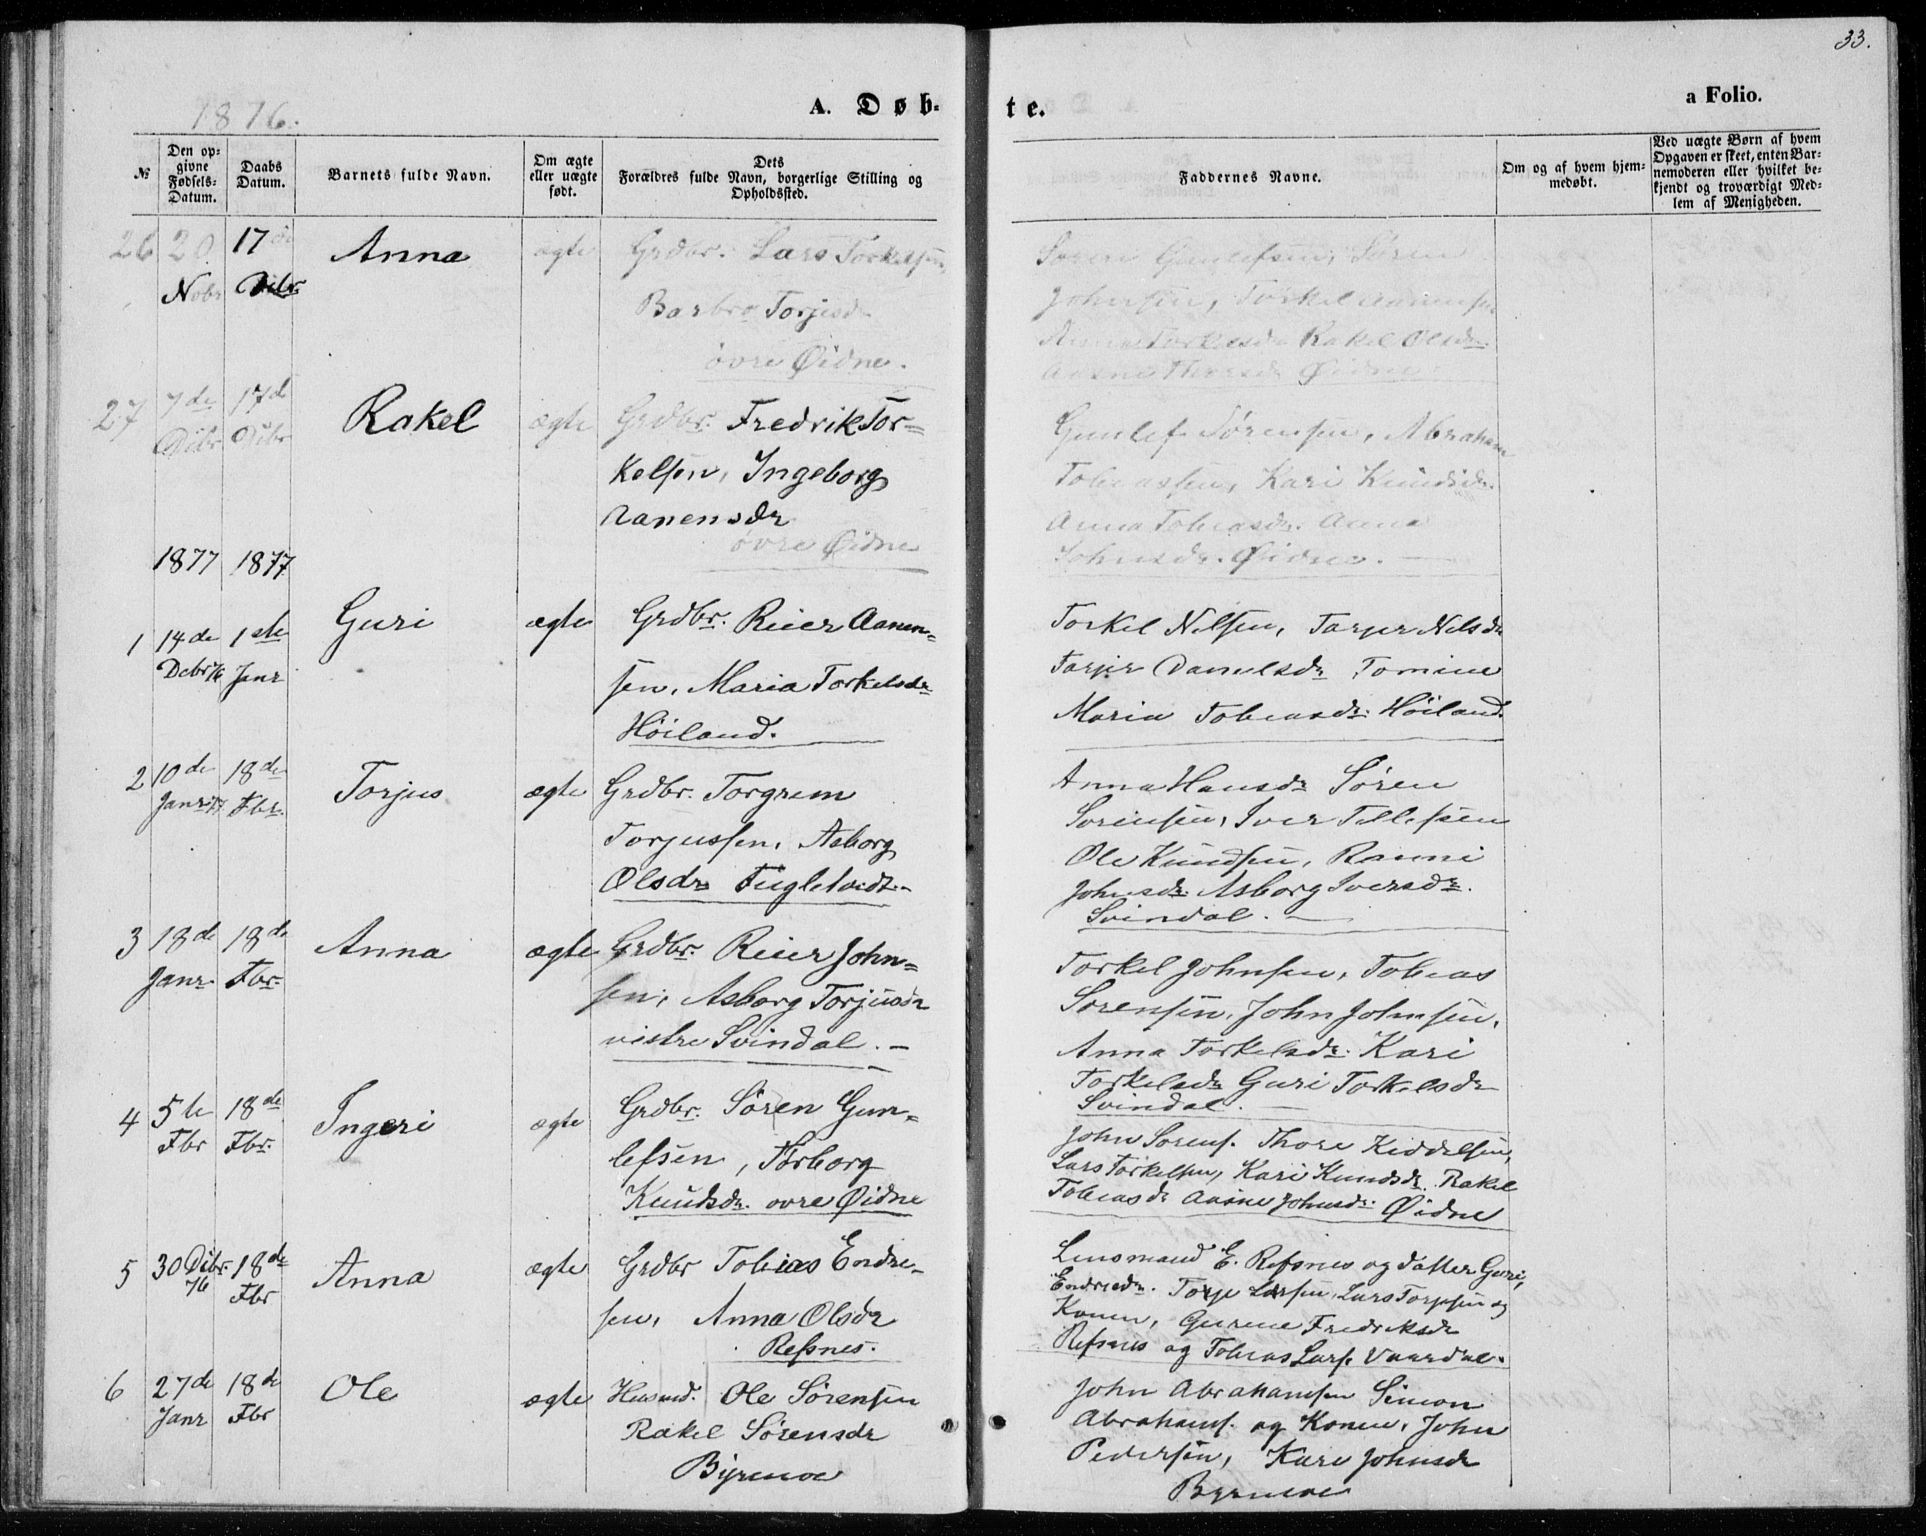 33.
A. Døb-
te.
a Folio.
1876.
№
Den op-
givne
Fødsels-
Datum.
Daabs
Datum.
Barnets fulde Navn.
Om ægte
eller uægte
født.
Dets
Forældres fulde Navn, borgerlige Stilling og
Opholdssted.
Faddernes Navne.
Om og af hvem hjem-
medøbt.
Ved uægte Børn af hvem
Opgaven er skeet, enten Bar-
nemoderen eller hvilket be-
kjendt og troværdigt Med-
lem af Menigheden.
26 20 17de Anna ægte Grdbr. Lars Torkelsen,
Nobr Dibr
Barbro Torjesdr
øvre Øidne.
Søren Gunlefsen, Søren
Johnsen, Torkel Aanensen
Torkelsdr Rakel Olsdr
Thorsdr Øidne.
27 7de 17de Rakel ægte Grdbr. Fredrik Tor-
Dibr Dibr
kelsen, Ingeborg
Aanensdr
øvre Øidne
Gunlef Sørensen, Abraham
Tobiassen, Kari Knudsdr.
Anna Tobiasdr. Anna
Johnsdr. Øidne. —
1877 1877
1 14de 1ste Guri ægte Grdbr. Reier Aanen-
Debr 76 Janr
sen, Maria Torkelsdr
Høiland.
Torkel Nilsen, Tarjer Nilsdr
Tarjer Danielsdr Tomine
Maria Tobiasdr. Høiland.
2 10de 18de Torjus ægte Grdbr. Torgrem
Janr 77 Fbr.
Torjussen, Asborg
Olsdr Fugletvedt.-
Anna Hansdr Søren
Sørensen, Iver Tellefsen
Ole Knudsen, Ranni
Johnsdr. Asborg Iversdr.
Svindal. —
3 18de 18de Anna ægte Grdbr. Reier John-
Janr Fbr.
sen, Asborg Torjusdr
vestre Svindal. —
Torkel Johnsen, Tobias
Sørensen, John Johnsen,
Anna Torkelsdr. Kari
Torkelsdr Guri Torkelsdr
Svindal. —
4 5te 18de Ingeri ægte Grdbr. Søren Gun-
Fbr Fbr.
lefsen, Torborg
Knudsdr. øvre Øidne
John Sørens. Thore Kiddelsen,
Lars Torkelsen, Kari Knudsdr. Rakel
Tobiasdr Johnsdr. Øidne
5 30 Dibr. 18de Anna ægte Grdbr Tobias Endre-
76 Fbr
sen, Anna Olsdr
Refsnes.
Lensmand E. Refsnes og datter Guri,
Endresdr. Torje Larsen, Lars Torjesen og
Konen, Gurine Fredriksdr
Refsnes og Tobias Lars. Vaardal.
6 27de 18de Ole ægte Husmd. Ole Sørensen
Janr Fbr
Rakel Sørensdr
Byremoe
John Abrahamsen Simon
Abrahams. og Konen, John
Pedersen, Kari Johnsdr
Byremoe